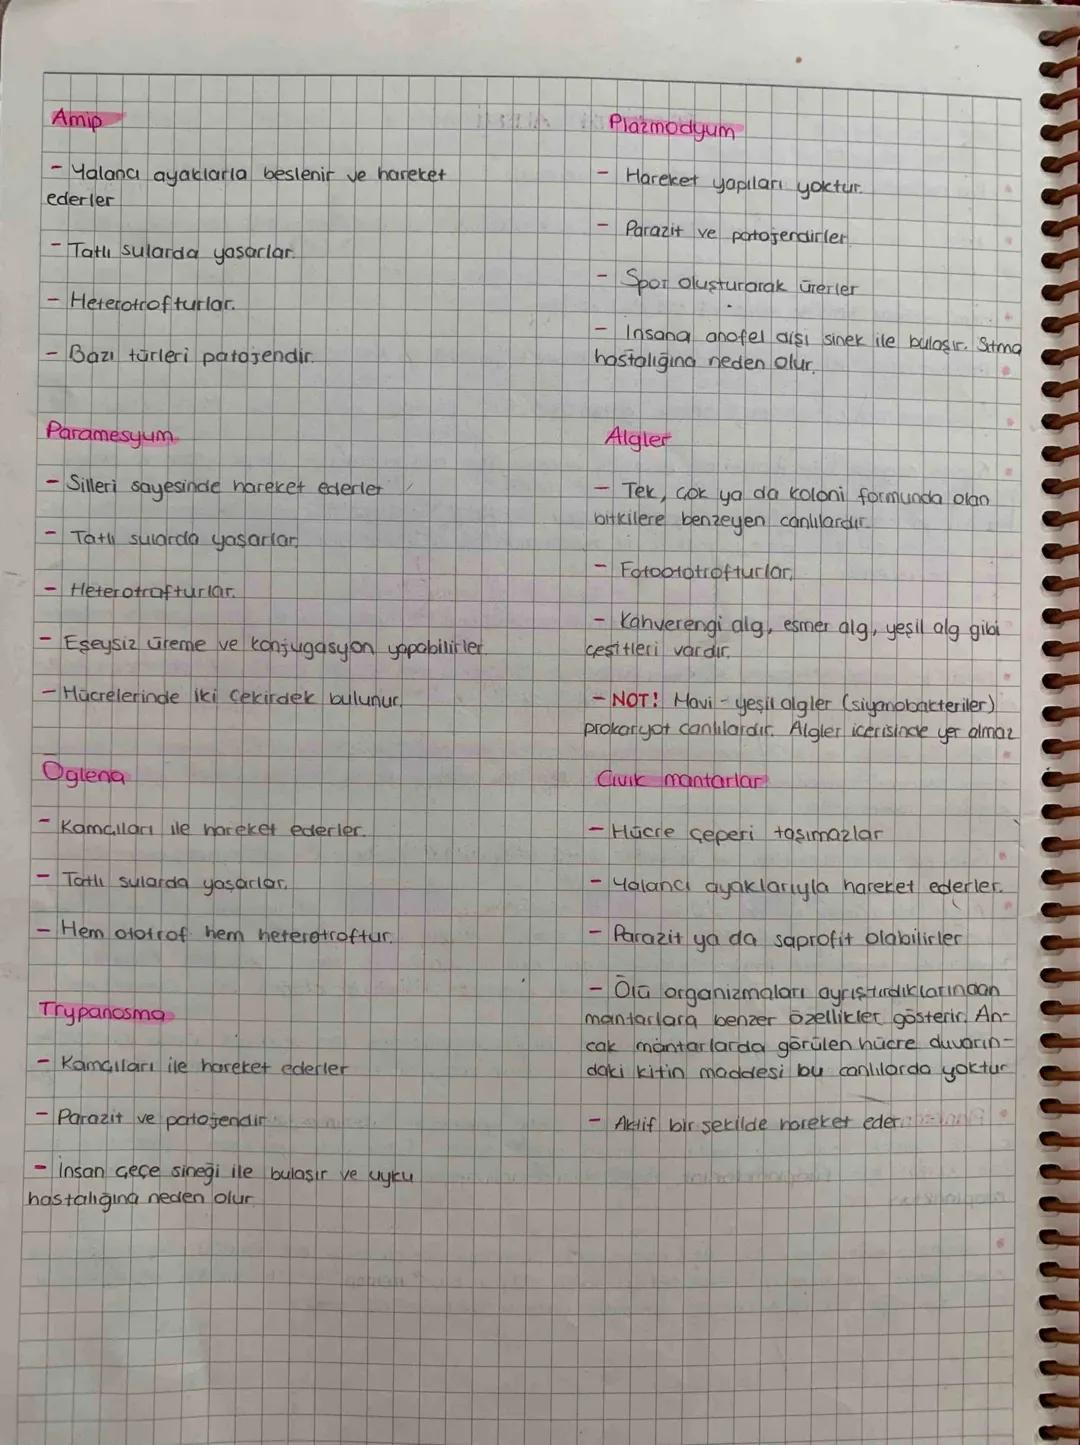 Amip
- Yalancı ayaklarla beslenir ve hareket
ederler
- Tatlı sularda yaşarlar.
- Heterotrofturlar.
- Bazı türleri patojendir.
Paramesyum
- Silleri sayesinde hareket ederler
- Tatlı sularda yaşarlar.
- Heterotrofturlar.
- Eşeysiz üreme ve konjugasyon yapabilirler.
- Hücrelerinde iki çekirdek bulunur.
Öglena
- Kamçıları ile hareket ederler.
- Tatlı sularda yaşarlar.
- Hem ototrof hem heterotroftur.
Trypanosma
- Kamçıları ile hareket ederler
- Parazit ve patojendir
- İnsan çeçe sineği ile bulaşır ve uyku
hastalığına neden olur
Plazmodyum
- Hareket yapıları yoktur.
- Parazit ve patojendirler.
- Spor oluşturarak ürerler
- İnsana anofel dişi sinek ile bulaşır. Sıtma
hastalığına neden olur.
Algler
- Tek, çok ya da koloni formunda olan
bitkilere benzeyen canlılardır.
- Fotoototrofturlar.
- Kahverengi alg, esmer alg, yeşil alg gibi
çeşitleri vardır.
- NOT! Mavi - yeşil algler (siyanobakteriler)
prokaryot canlılardır. Algler içerisinde yer almaz
Cıvık mantarlar
- Hücre çeperi taşımazlar
- Yalancı ayaklarıyla hareket ederler.
- Parazit ya da saprofit olabilirler
- Ölü organizmaları ayrıştırdıklarından
mantarlara benzer özellikler gösterir. An-
cak mantarlarda görülen hücre duvarın-
daki kitin maddesi bu canlılarda yoktur
- Aktif bir şekilde hareket eder.